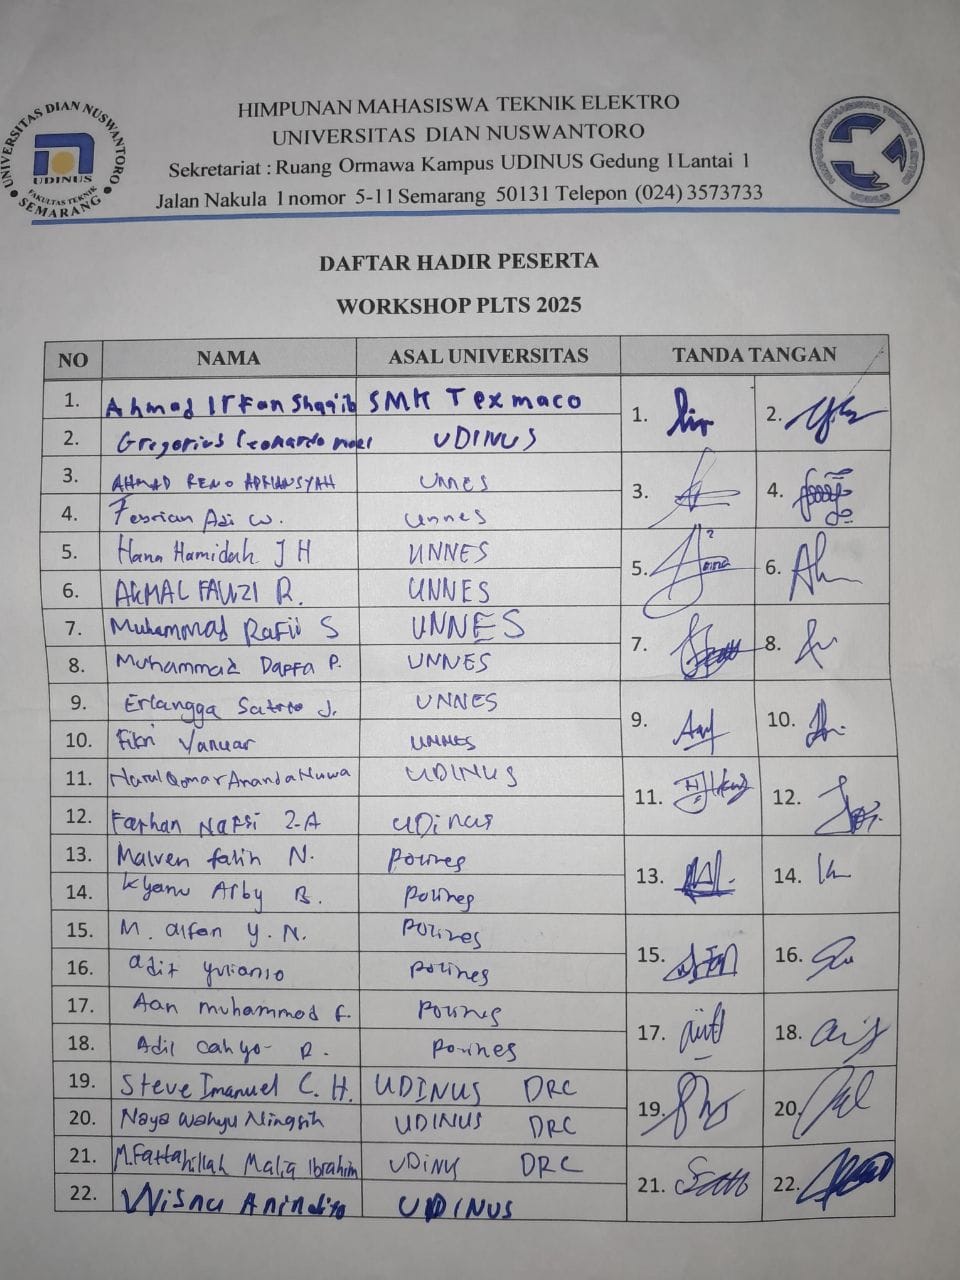 HIMPUNAN MAHASISWA TEKNIK ELEKTRO
UNIVERSITAS DIAN NUSWANTORO
Sekretariat : Ruang Ormawa Kampus UDINUS Gedung I Lantai 1
Jalan Nakula 1 nomor 5-11 Semarang 50131 Telepon (024) 3573733
UNIVERSITAS DIAN NUSWANTORO
UDINUS
FAKULTAS TEKNIK
SEMARANG
HIMPUNAN MAHASISWA TEKNIK ELEKTRO
UDINUS
DAFTAR HADIR PESERTA
WORKSHOP PLTS 2025
NO NAMA ASAL UNIVERSITAS TANDA TANGAN
1. Ahmad Irfan Shaqib SMK Texmaco 1. 2.
2. Gregorius Leonardo UDINUS
3. AHMAD RENO ADRIANSYAH UNNES 3. 4.
4. Febrian Adi W. Unnes
5. Hana Hamidah J H UNNES 5. 6.
6. AKMAL FAUZI R. UNNES
7. Muhammad Rafii S UNNES 7. 8.
8. Muhammad Daffa P. UNNES
9. Erlangga Satrio J. UNNES 9. 10.
10. Fikri Yanuar UNNES
11. Nurul Qomar Ananda Nuwa UDINUS 11. 12.
12. Farhan Nafsi Z.A UDinus
13. Malven falih N. Polines 13. 14.
14. Kyanu Arby B. Polines
15. M. alfan Y. N. Polines 15. 16.
16. adit yulianto Polines
17. Aan muhammad F. Polines 17. 18.
18. Adil cahyo R. Polines
19. Steve Imanuel C. H. UDINUS DRC 19. 20.
20. Naya Wahyu Ningsih UDINUS DRC
21. M.Fattahillah Malia Ibrahim UDINU DRC 21. 22.
22. Wisnu Anindito UDINUS